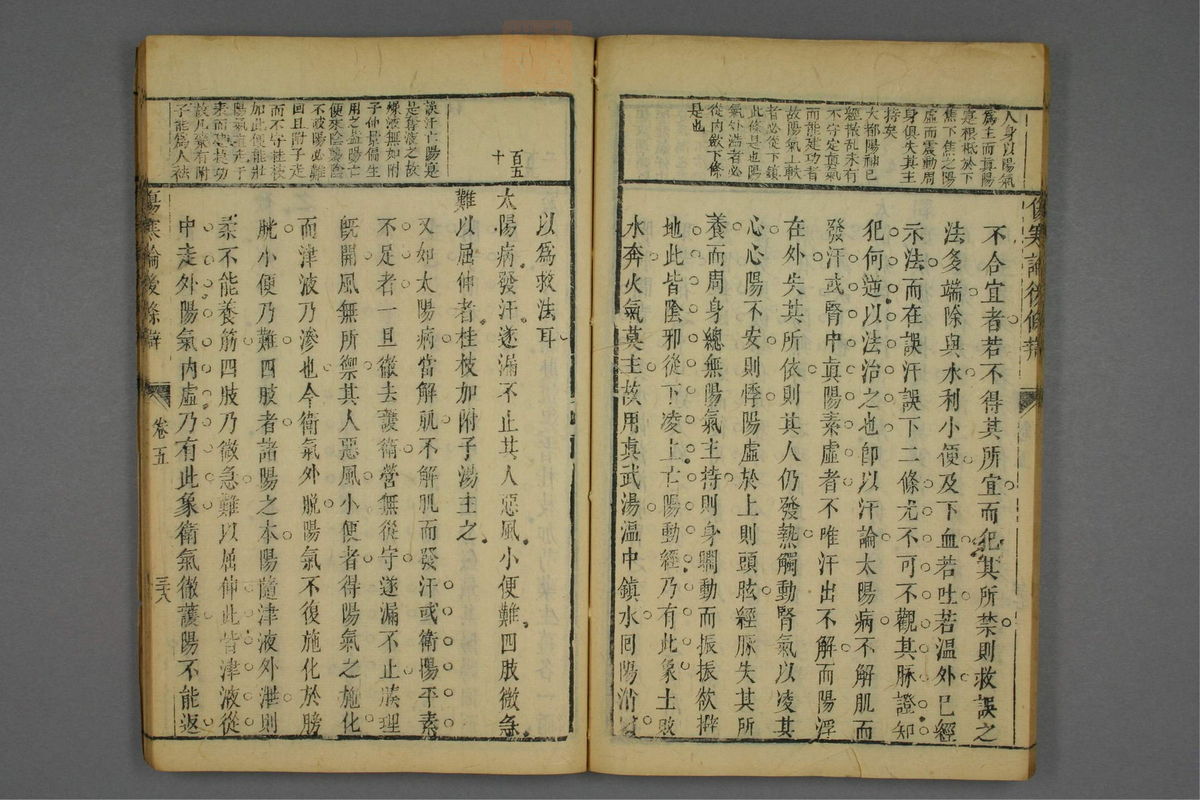 人身以陽氣
爲主而眞陽
寔根柢於下
焦下焦之陽
虛而震動周
身俱失其主
持矣
大都陽神已
經散乱未有
不守定眞氣
而能建功者
故陽氣上軼
者必從下鎮
此條是也陽
氣外浩者必
從内斂下條
是也
傷寒論後條辯
不合宜者若不得其所宜而犯其所禁則救誤之
法多端除與水利小便及下血若吐若溫外已經
示法而在誤汗誤下二條尤不可不觀其脉證知
犯何逆以法治之也卽以汗論太陽病不解肌而
發汗或腎中眞陽素虛者不唯汗出不解而陽浮
在外失其所依則其人仍發熱觸動腎氣以凌其
心心陽不安則悸陽虛於上則頭眩經脉失其所
養而周身總無陽氣主持則身瞤動而振振欲擗
地此皆陰邪從下凌上亡陽動經乃有此象土敗
水奔火氣莫主故用眞武湯溫中鎮水囘陽消
誤汗亡陽寔
是奪液之故
緣液無如附
子仲景偏生
用之益陽亡
便來陰陽陰
不被陽必難
回且附子走
而不守桂枝
加此便能壯
陽氣連走于
表而建扶功
故凡藥有附
子能爲人祛
百五十
以爲救法耳
太陽病發汗遂漏不止其人惡風小便難四肢微急
難以屈伸者桂枝加附子湯主之
又如太陽病當解肌不解肌而發汗或衛陽平素
不足者一旦徹去護衛營無從守遂漏不止腠理
旣開風無所禦其人惡風小便者得陽氣之施化
而津液乃滲也今衛氣外脫陽氣不復施化於膀
胱小便乃難四肢者諸陽之本陽隨津液外泄則
柔不能養筋四肢乃微急難以屈伸此皆津液從
中走外陽氣内虛乃有此象衛氣徹護陽不能返
傷寒論後條辯
卷五
三六